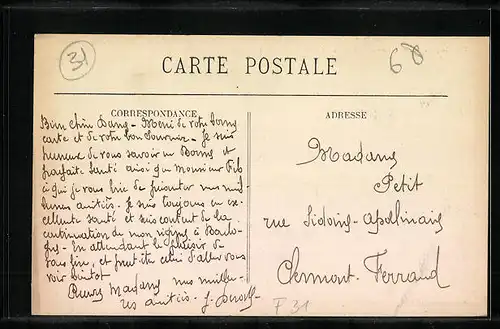 31
68
CARTE POSTALE
CORRESPONDANCE
ADRESSE
Bien chère Dame - Merci de votre bonne
carte et de votre bon souvenir - Je suis
heureux de vous savoir en Bonne et
parfaite santé ainsi que Monsieur
à qui je vous prie de présenter mes meil-
leures amitiés. Je suis toujours en ex-
cellente santé et suis content de la
continuation de mon
En attendant le plaisir de
vous lire, et peut-être celui d'aller vous
voir bientôt
Recevez Madame mes meilleu-
res amitiés
Madame
Petit
rue Sidoine-Apollinaire
Clermont-Ferrand
F 31